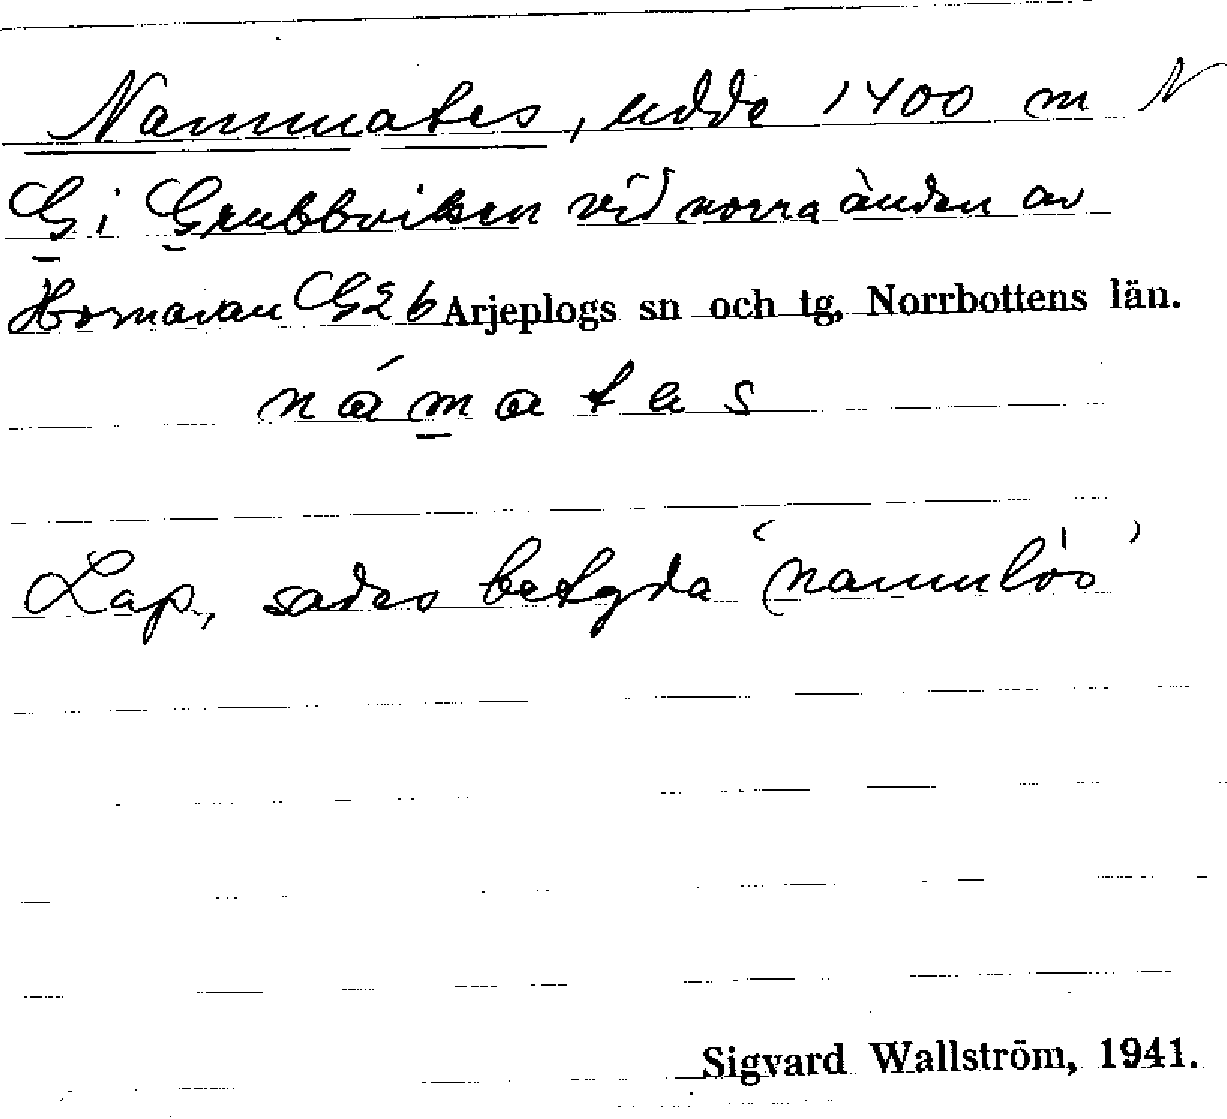 Nammates, udde 1400 m N
G i Grubbviken vid norra änden av
Hornavan G2b Arjeplogs sn och tg, Norrbottens län.
námatas
Lap., sades betyda 'namnlös'
Sigvard Wallström, 1941.